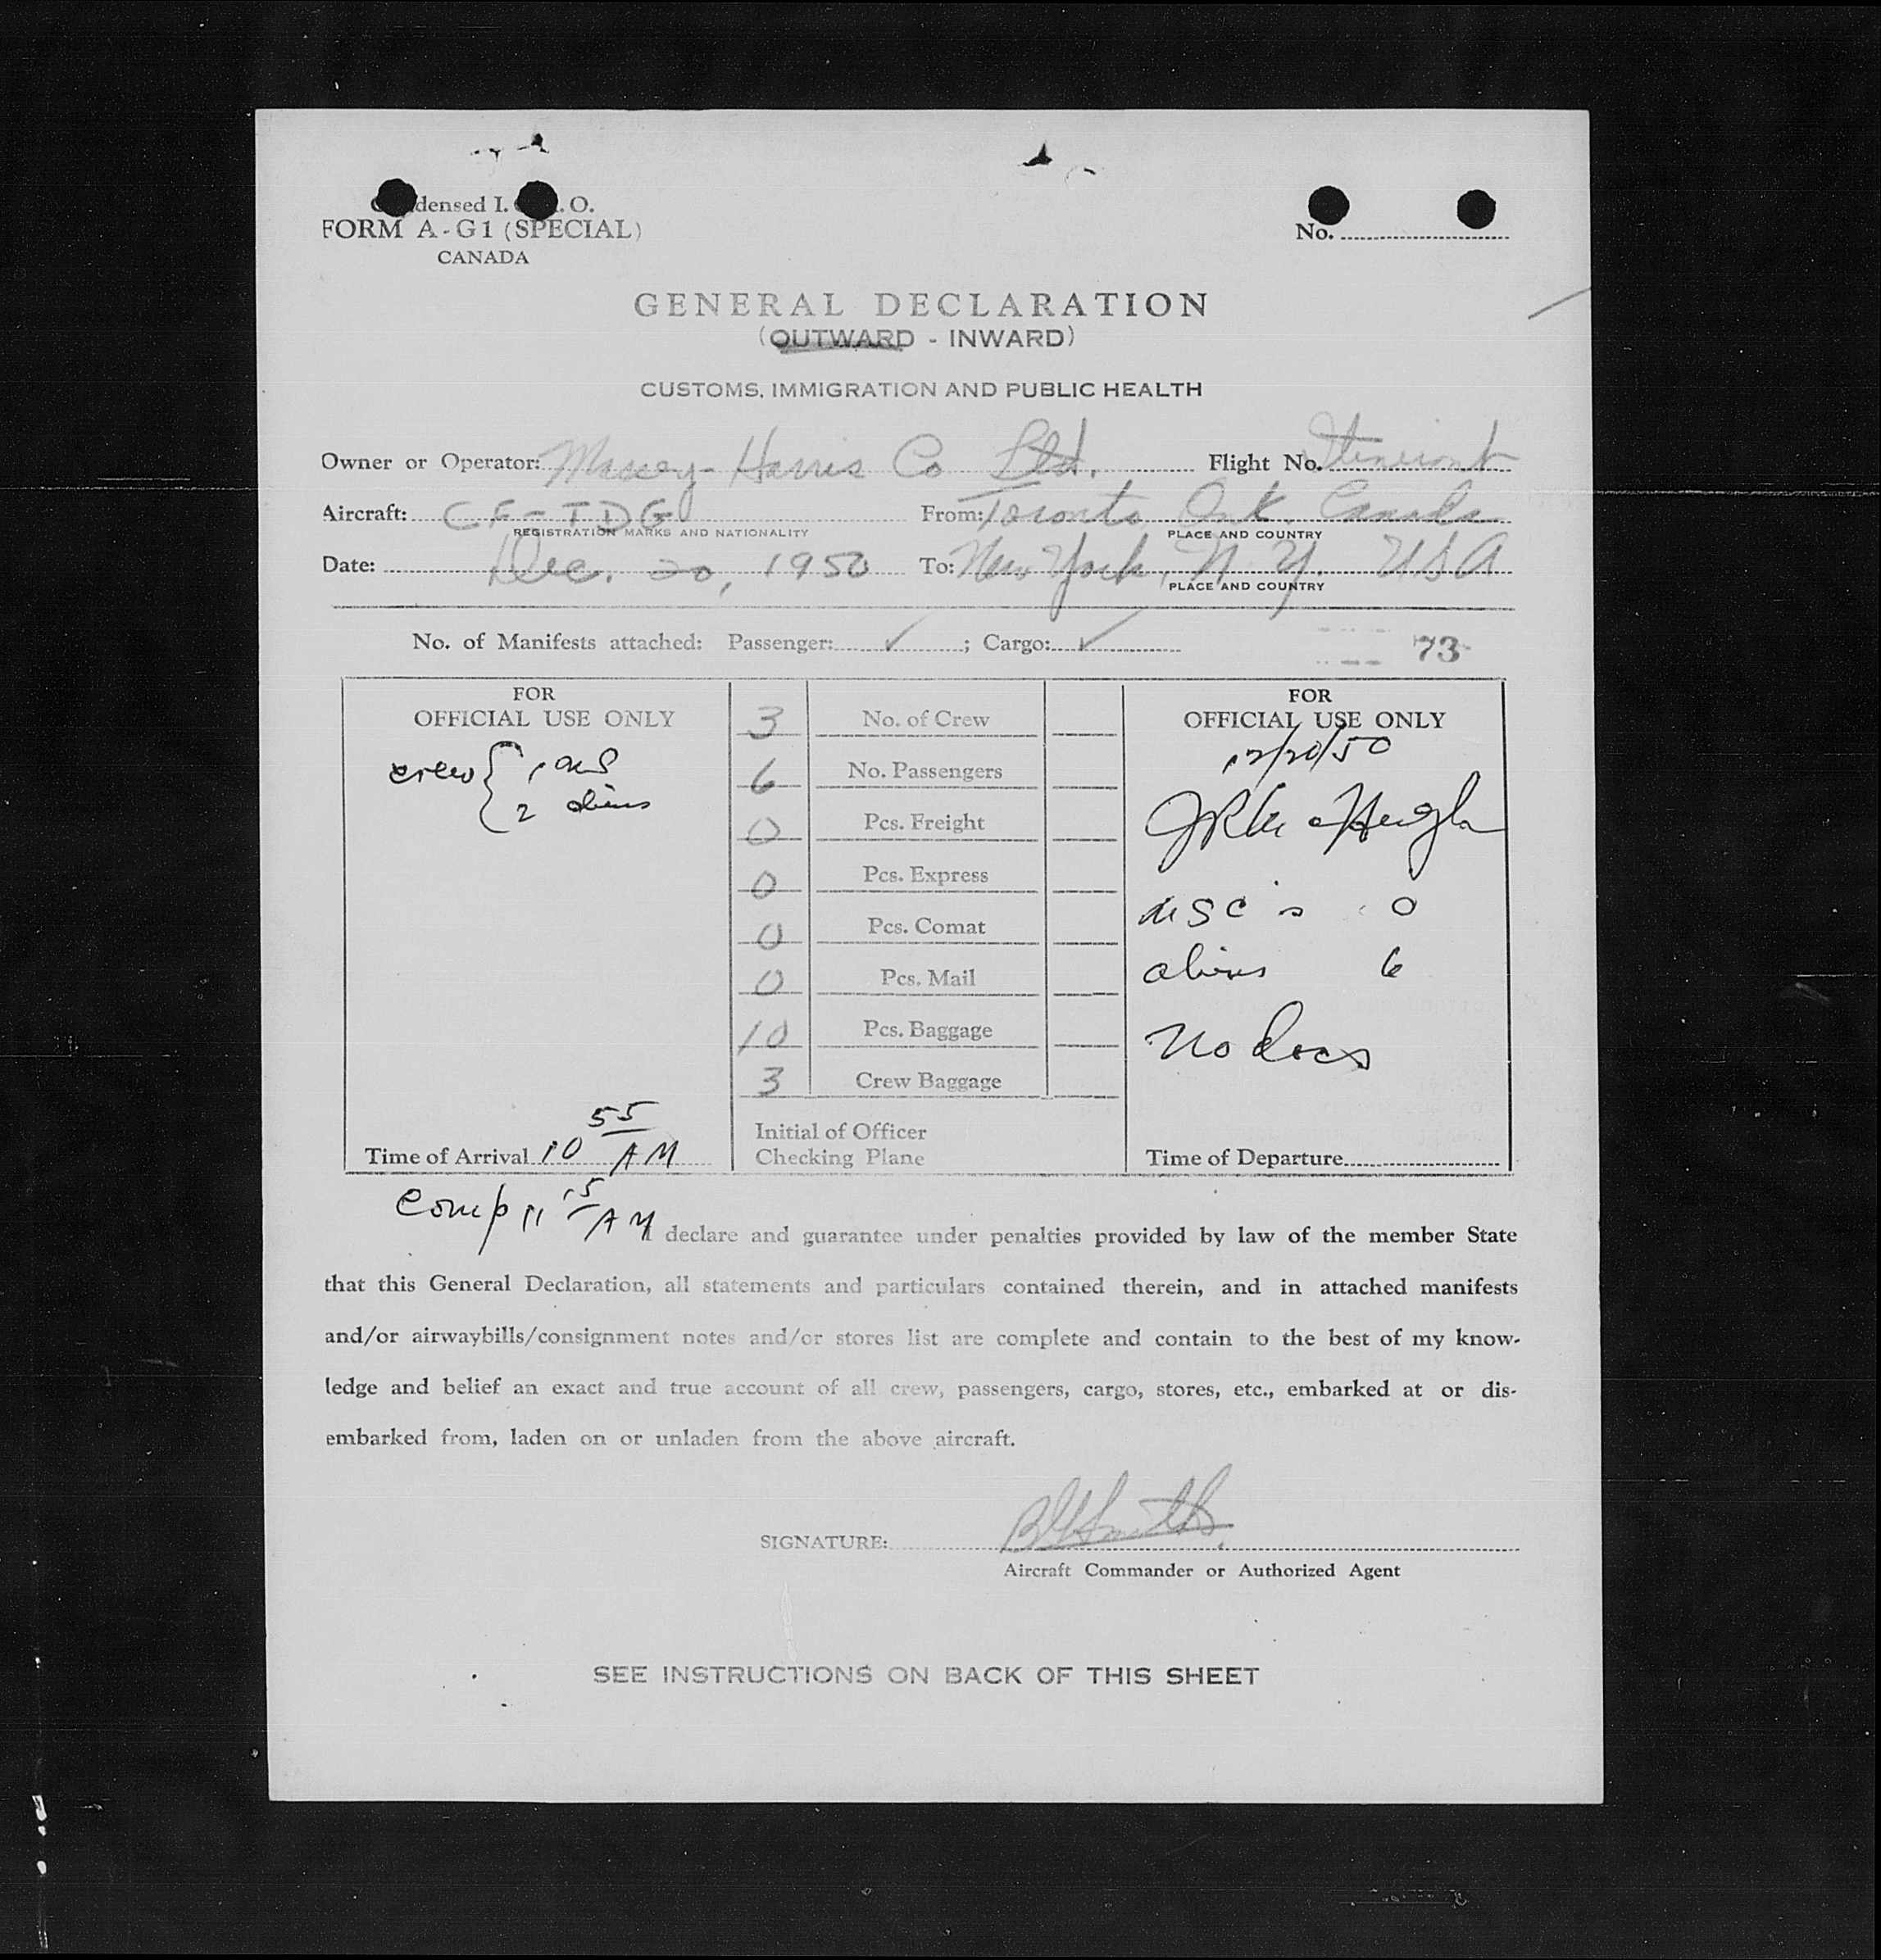 densed I. . O.
FORM A-G1 (SPECIAL)
CANADA
No.
GENERAL DECLARATION
(OUTWARD - INWARD)
CUSTOMS, IMMIGRATION AND PUBLIC HEALTH
Owner or Operator: Massey-Harris Co Ltd. Flight No. Itinerant
Aircraft: CF-TDG From: Toronto Ont. Canada
REGISTRATION MARKS AND NATIONALITY PLACE AND COUNTRY
Date: Dec. 20, 1950 To: New York, N.Y. USA
PLACE AND COUNTRY
No. of Manifests attached: Passenger: ✓ ; Cargo: ✓ 73
FOR
OFFICIAL USE ONLY
crew { 1
2 aliens
Time of Arrival 10 55 AM
3 No. of Crew
6 No. Passengers
0 Pcs. Freight
0 Pcs. Express
0 Pcs. Comat
0 Pcs. Mail
10 Pcs. Baggage
3 Crew Baggage
Initial of Officer
Checking Plane
FOR
OFFICIAL USE ONLY
12/20/50
USC's 0
aliens 6
No docs
Time of Departure
Comp 11 15 AM
I declare and guarantee under penalties provided by law of the member State
that this General Declaration, all statements and particulars contained therein, and in attached manifests
and/or airwaybills/consignment notes and/or stores list are complete and contain to the best of my know-
ledge and belief an exact and true account of all crew, passengers, cargo, stores, etc., embarked at or dis-
embarked from, laden on or unladen from the above aircraft.
SIGNATURE: Smith
Aircraft Commander or Authorized Agent
SEE INSTRUCTIONS ON BACK OF THIS SHEET